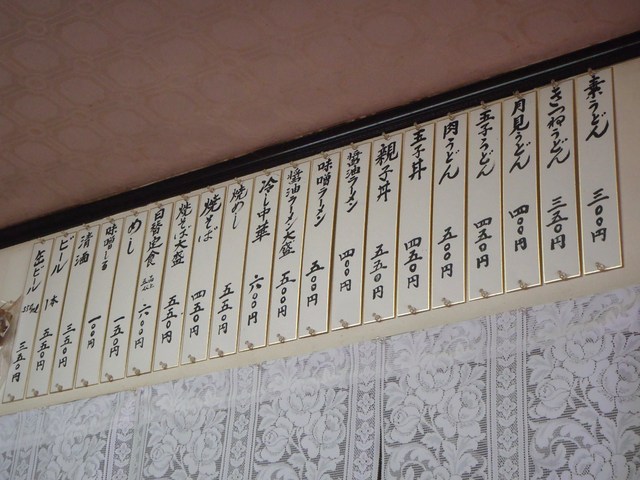 素うどん 三〇〇円
きつねうどん 三五〇円
月見うどん 四〇〇円
玉子うどん 四五〇円
肉うどん 五〇〇円
玉子丼 四五〇円
親子丼 五五〇円
醤油ラーメン 四〇〇円
味噌ラーメン 五〇〇円
醤油ラーメン大盛 五〇〇円
冷し中華 六〇〇円
焼めし 五五〇円
焼そば 四五〇円
焼そば大盛 五五〇円
日替定食 六〇〇円
めし 一五〇円
味噌しる 一〇〇円
清酒 三五〇円
ビール 1本 五五〇円
缶ビール 三五〇円